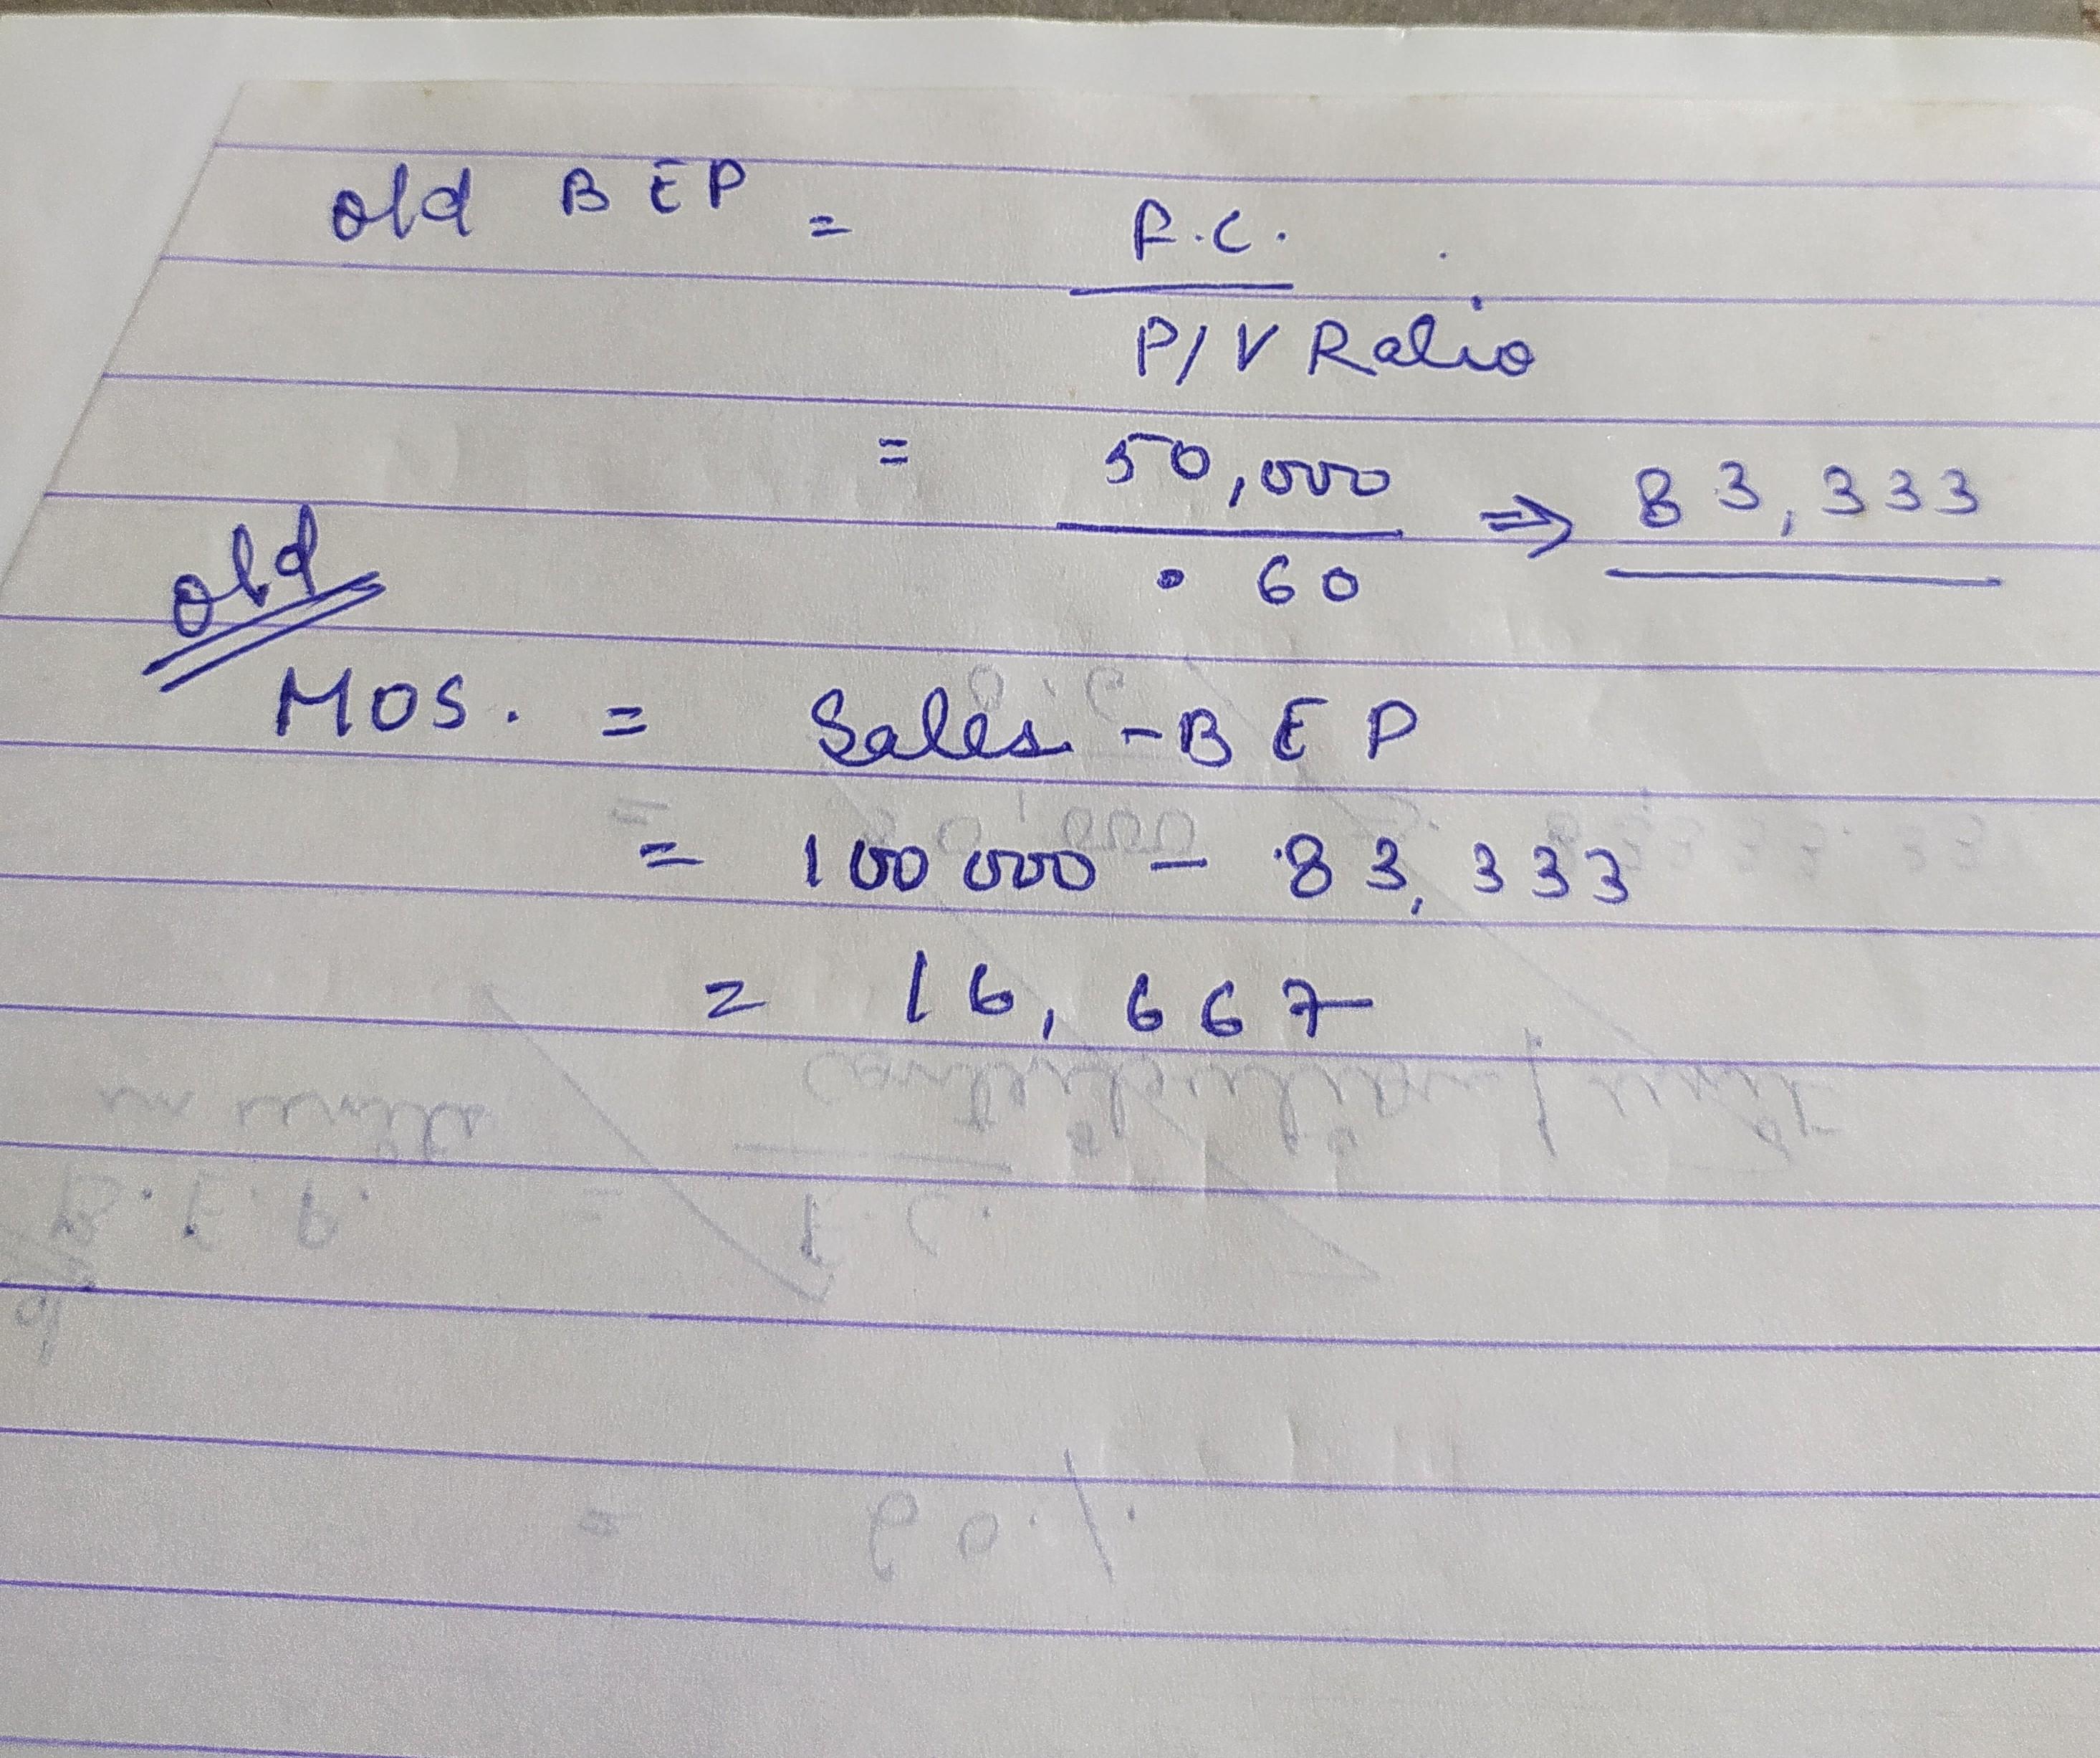 old BEP = F.C.
P/V Ratio
= 50,000 ⇒ 83,333
.60
old
MOS. = Sales - BEP
= 100000 - 83,333
= 16,667